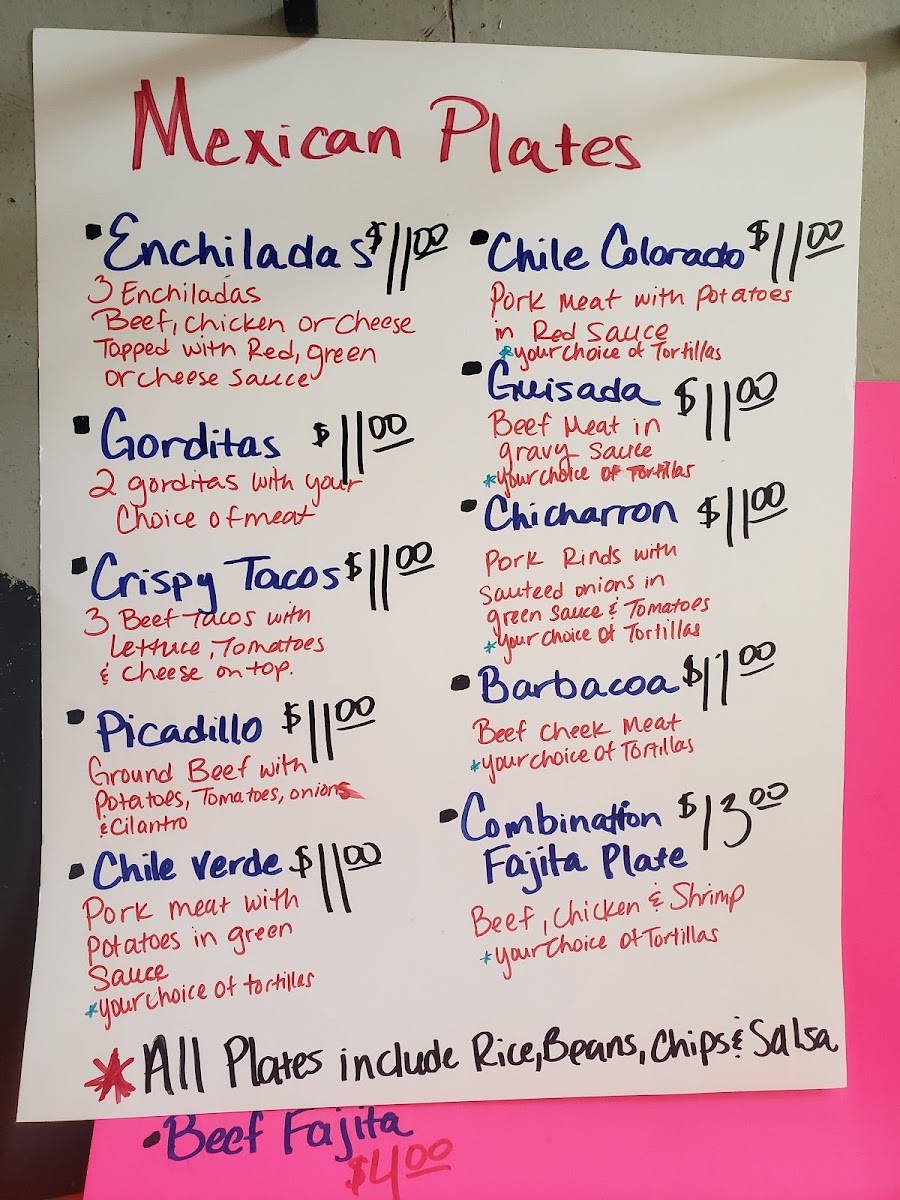 Mexican Plates
• Enchiladas $11.00
3 Enchiladas
Beef, Chicken or Cheese
Topped with Red, green
or cheese sauce
• Gorditas $11.00
2 gorditas with your
Choice of meat
• Crispy Tacos $11.00
3 Beef Tacos with
Lettuce, Tomatoes
& Cheese on top.
• Picadillo $11.00
Ground Beef with
Potatoes, Tomatoes, onions
& Cilantro
• Chile Verde $11.00
Pork meat with
potatoes in green
Sauce
*your choice of tortillas
• Chile Colorado $11.00
Pork meat with potatoes
in Red Sauce
*your choice of Tortillas
• Guisada $11.00
Beef Meat in
gravy Sauce
*your choice of Tortillas
• Chicharron $11.00
Pork Rinds with
Sauteed onions in
green sauce & Tomatoes
*your choice of Tortillas
• Barbacoa $11.00
Beef Cheek Meat
*your choice of Tortillas
• Combination $13.00
Fajita Plate
Beef, Chicken & Shrimp
*your Choice of Tortillas
* All Plates include Rice, Beans, Chips & Salsa
• Beef Fajita
$4.00